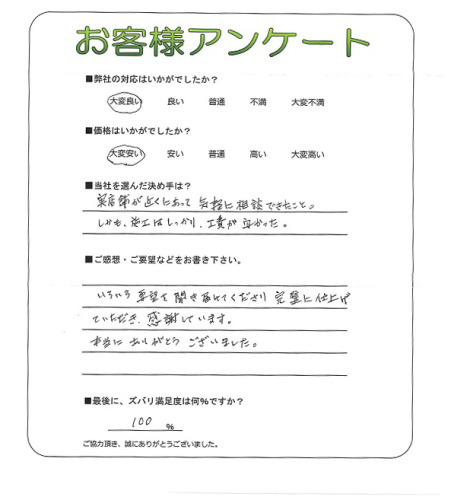 お客様アンケート
■弊社の対応はいかがでしたか?
大変良い 良い 普通 不満 大変不満
■価格はいかがでしたか?
大変安い 安い 普通 高い 大変高い
■当社を選んだ決め手は?
実店舗が近くにあって 気軽に相談できたこと。
しかも、施工はしっかり、工賃が安かった。
■ご感想・ご要望などをお書き下さい。
いろいろ要望を聞き届けてくださり 完璧に仕上げ
ていただき、感謝しています。
本当に ありがとう ございました。
■最後に、ズバリ満足度は何%ですか?
100 %
ご協力頂き、誠にありがとうございました。